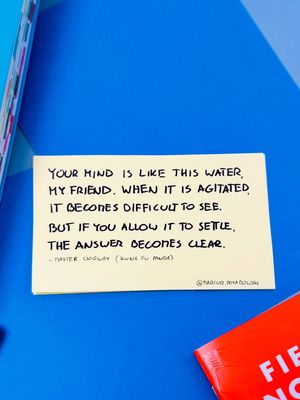 YOUR MIND IS LIKE THIS WATER,
MY FRIEND. WHEN IT IS AGITATED,
IT BECOMES DIFFICULT TO SEE.
BUT IF YOU ALLOW IT TO SETTLE,
THE ANSWER BECOMES CLEAR.
- MASTER OOGWAY (KUNG FU PANDA)
FIE
NO